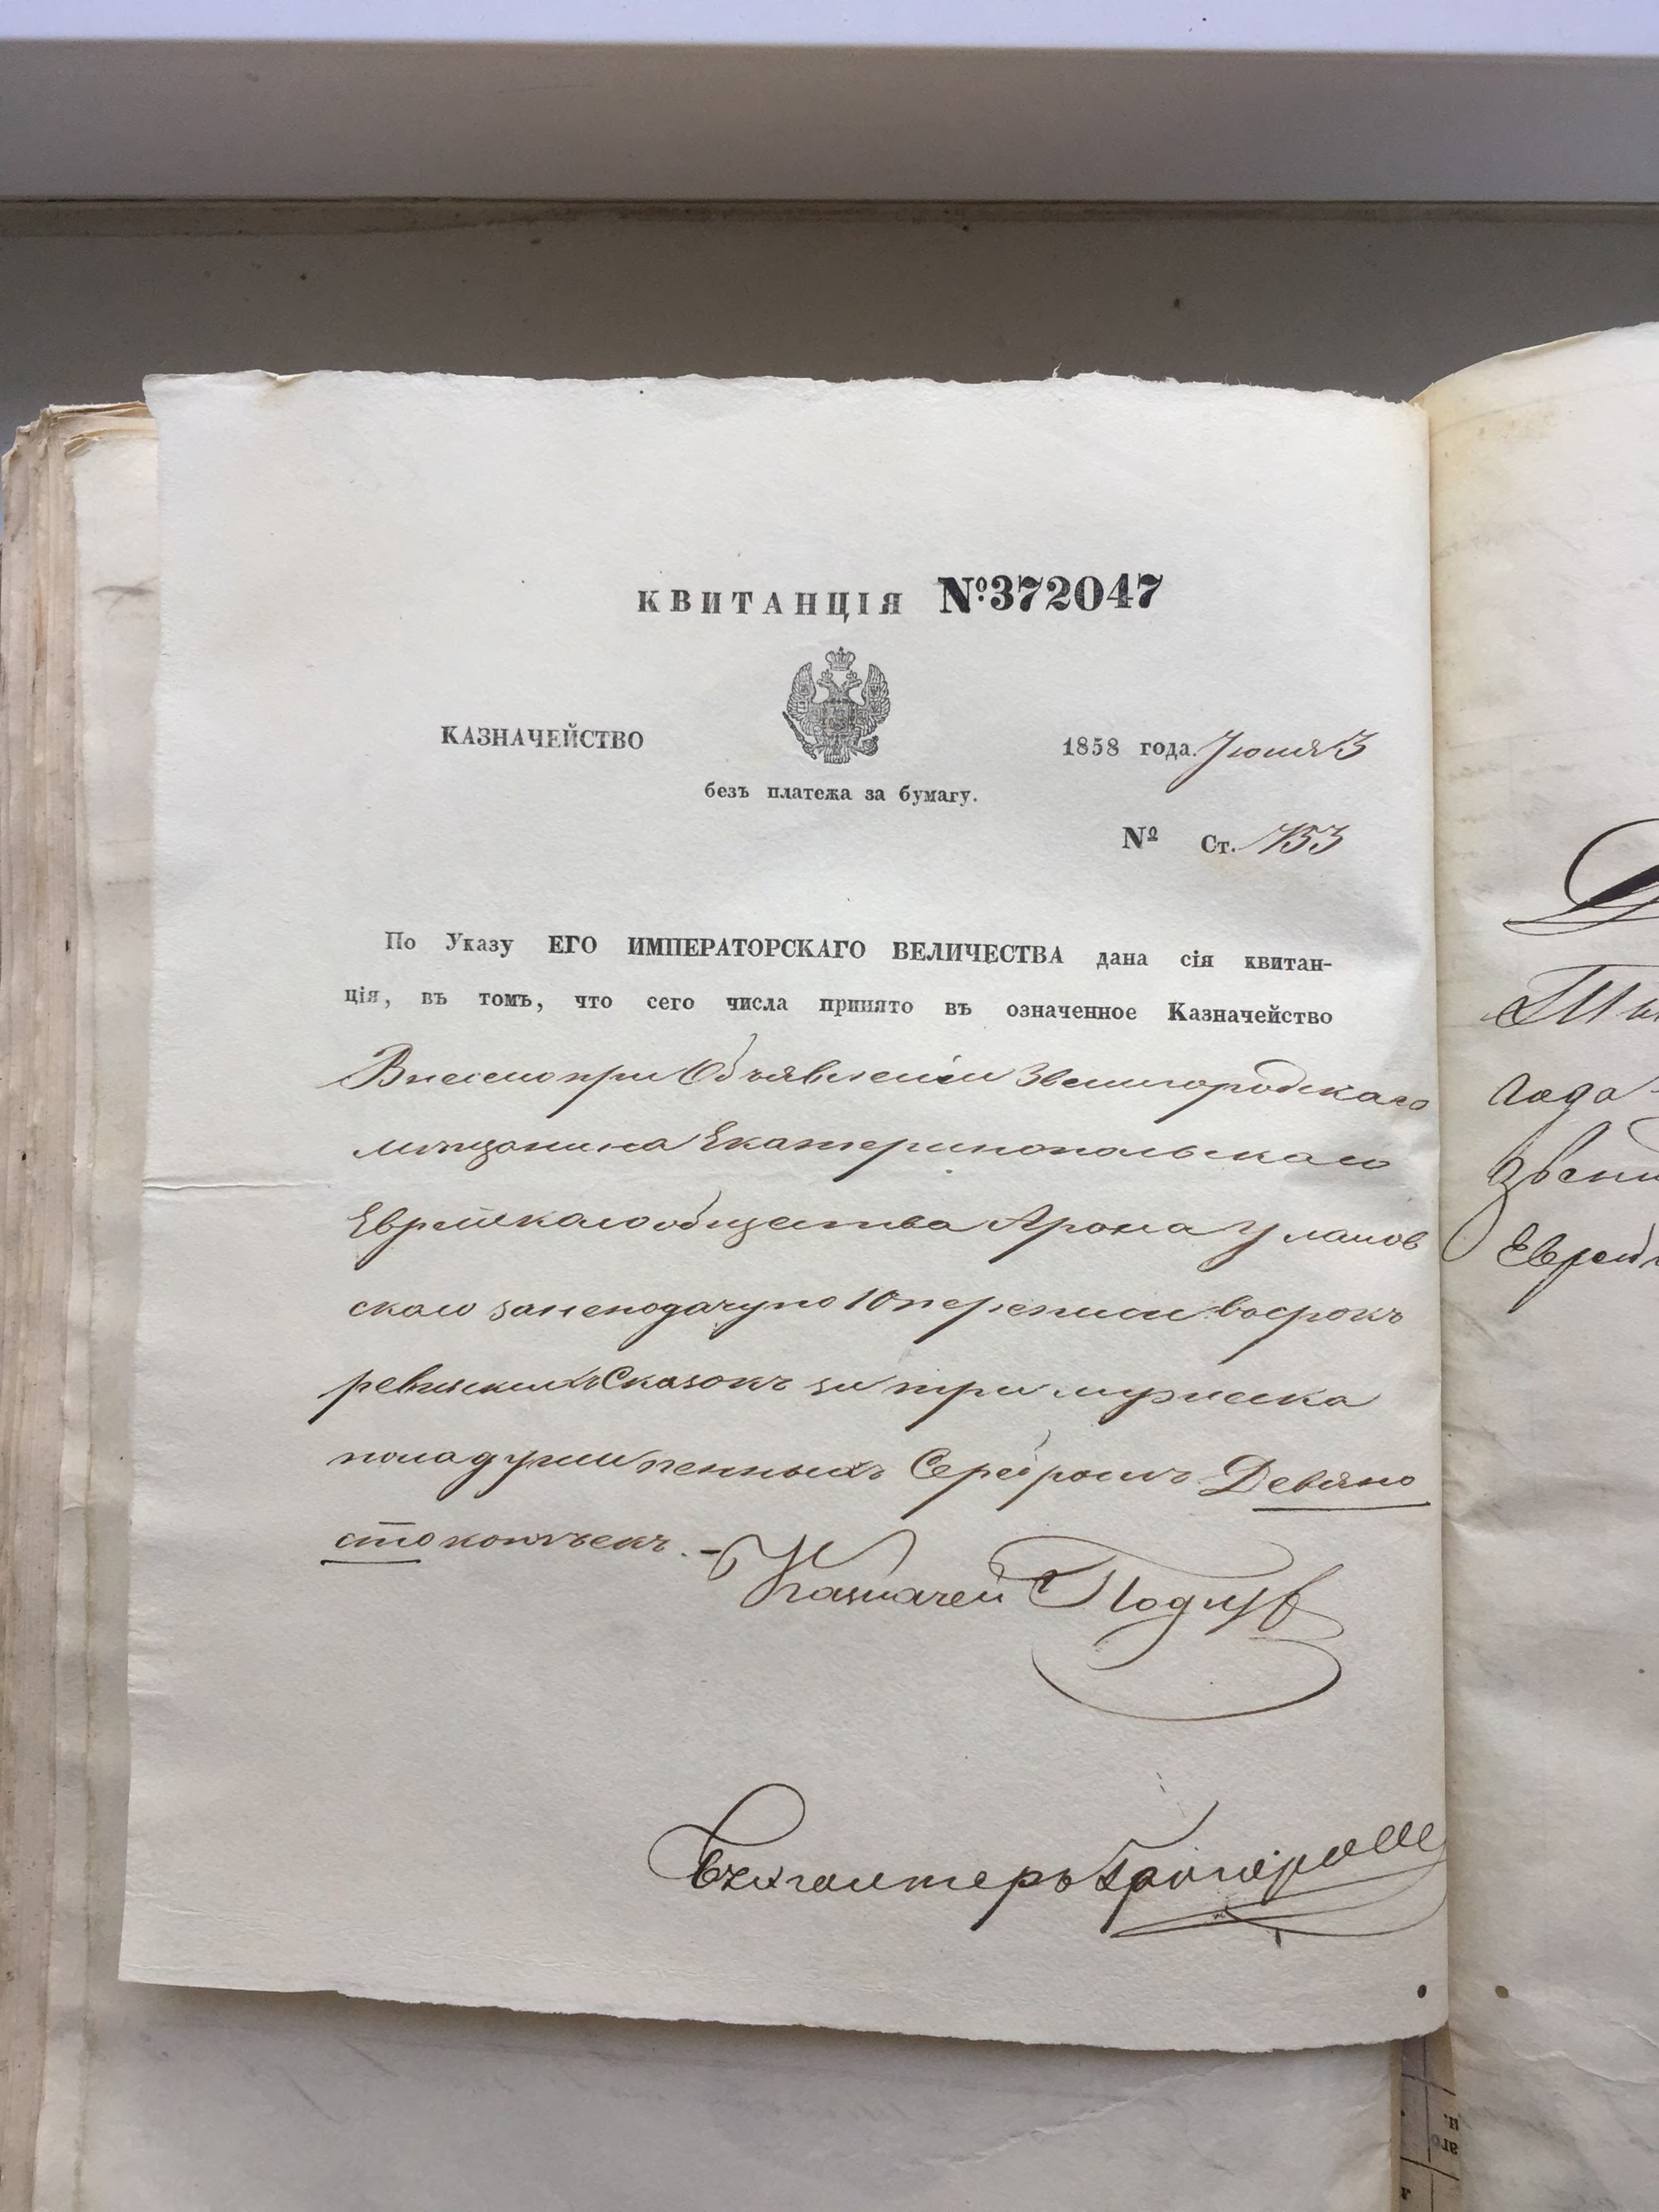 КВИТАНЦІЯ №372047
КАЗНАЧЕЙСТВО
1858 года. Іюня 3
безъ платежа за бумагу.
№ Ст. 1153
По Указу ЕГО ИМПЕРАТОРСКАГО ВЕЛИЧЕСТВА дана сія квитан-
ція, въ томъ, что сего числа принято въ означенное Казначейство
Внесено при Объявленіи Звенигородскаго
мѣщанина Екатеринопольскаго
Еврейскаго общества Арона Уланов
скаго за неподачу по 10 переписи въ срокъ
ревизскихъ Сказокъ за три мужеска
пола души пенныхъ Серебромъ Девяно
сто копѣекъ. –
Казначей
Бухгалтеръ
года
Звени
Еврей
аго
и.